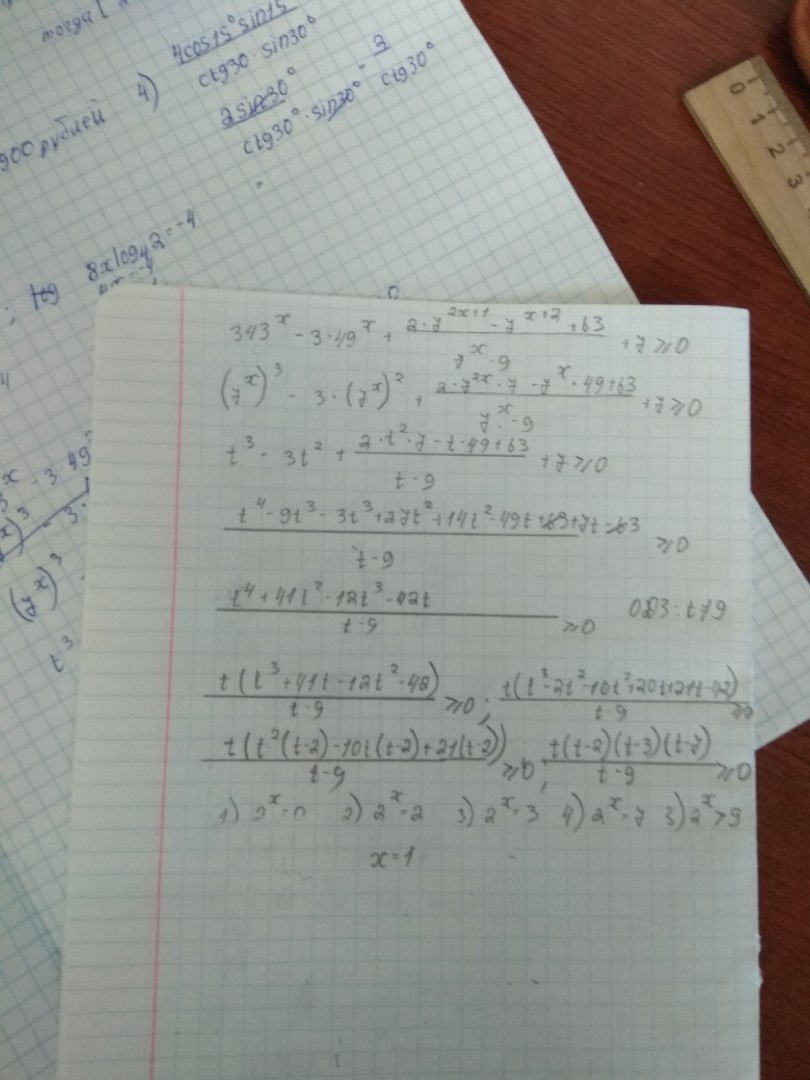 тогда
4cos15° sin15
4) ctg30 · sin30°
2sin30° / ctg30° · sin30° = 2 / ctg30°
900 рублей
8xlog₄2 = -4
343^x - 3·49^x + (2·7^(2x+1) - 7^(x+2) + 63) / (7^x - 9) + 7 ≥ 0
(7^x)^3 - 3·(7^x)^2 + (2·7^(2x)·7 - 7^x·49 + 63) / (7^x - 9) + 7 ≥ 0
t^3 - 3t^2 + (2·t^2·7 - t·49 + 63) / (t - 9) + 7 ≥ 0
(t^4 - 9t^3 - 3t^3 + 27t^2 + 14t^2 - 49t + 63 + 7t - 63) / (t - 9) ≥ 0
(t^4 + 41t^2 - 12t^3 - 42t) / (t - 9) ≥ 0
t(t^3 + 41t - 12t^2 - 42) / (t - 9) ≥ 0; t(t^3 - 2t^2 - 10t^2 + 20t + 21t - 42) / (t - 9) ≥ 0
t(t^2(t-2) - 10t(t-2) + 21(t-2)) / (t - 9) ≥ 0; t(t-2)(t-3)(t-7) / (t - 9) ≥ 0
1) 2^x = 0 2) 2^x = 2 3) 2^x = 3 4) 2^x = 7 3) 2^x > 9
x = 1
(7^x)^3
t^3
0 1 2 3